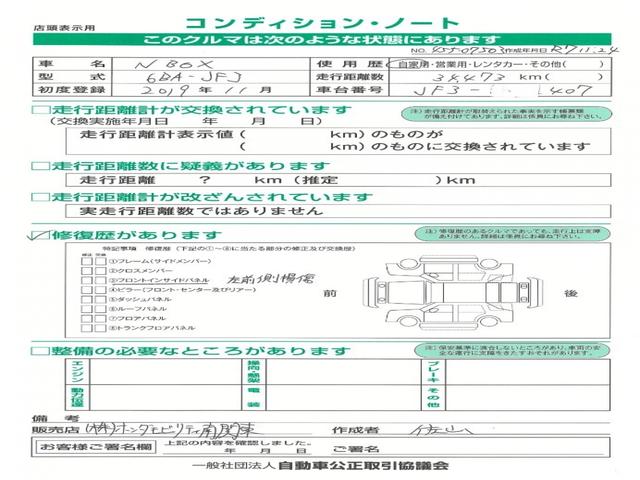 店頭表示用
コンディション・ノート
このクルマは次のような状態にあります
NO. 455-09503 作成年月日 R7.11.24
車名 N BOX 使用歴 自家用・営業用・レンタカー・その他( )
型式 6BA-JF3 走行距離数 38,473 km( )
初度登録 2019年11月 車台番号 JF3- 407
□走行距離計が交換されています
注)走行距離計が取替えられた事実を示す帳票類が備え付けてあります。詳細は係員にお尋ね下さい。
(交換実施年月日 年 月 日)
走行距離計表示値( km)のものが
( km)のものに交換されています
□走行距離数に疑義があります
走行距離 ? km(推定 )km
□走行距離計が改ざんされています
実走行距離数ではありません
□修復歴があります
注)修復歴のあるクルマであっても、走行上は支障ありません。詳細は係員にお尋ね下さい。
特記事項 修復歴(下記の①~⑧に当たる部分の修正及び交換歴)
修正 交換
①フレーム(サイドメンバー)
②クロスメンバー
③フロントインサイドパネル 左前側損傷
④ピラー(フロント・センター及びリアー)
⑤ダッシュパネル
⑥ルーフパネル
⑦フロアパネル
⑧トランクフロアパネル
前
後
□整備の必要なところがあります
注)保安基準に適合しないところがあり、車両の安全な運行に支障をきたすおそれがあります。
エンジン
操向懸架
ブレーキ
動力伝達
電装
その他
備考
販売店 (株)ホンダモビリティ南関東 作成者
お客様ご署名欄 上記の内容を確認しました。 年 月 日 ご署名
一般社団法人 自動車公正取引協議会